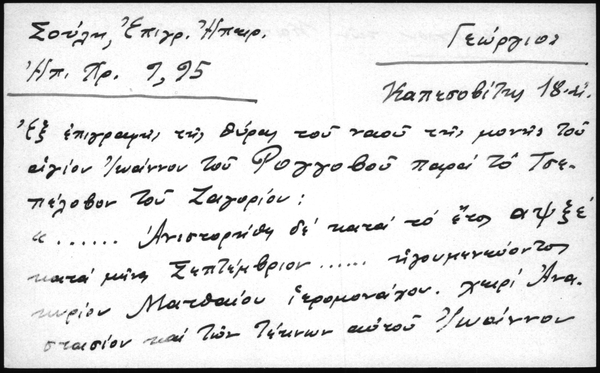 Σούλη, Ἐπιγρ. Ἠπειρ.
Ἠπ. Χρ. 9, 95
Γεώργιος
Καπεσοβίτης 18 αἰ.
Ἐξ ἐπιγραφῆς τῆς θύρας τοῦ ναοῦ τῆς μονῆς τοῦ
ἁγίου Ἰωάννου τοῦ Ρογγοβοῦ παρὰ τὸ Τσε-
πέλοβον τοῦ Ζαγορίου:
« ...... Ἀνιστορήθη δὲ κατὰ τὸ ἔτος αψξε΄
κατὰ μῆνα Σεπτέμβριον ...... ἡγουμενεύοντος
κυρίου Ματθαίου ἱερομονάχου. χειρὶ Ἀνα-
στασίου καὶ τῶν τέκνων αὐτοῦ Ἰωάννου